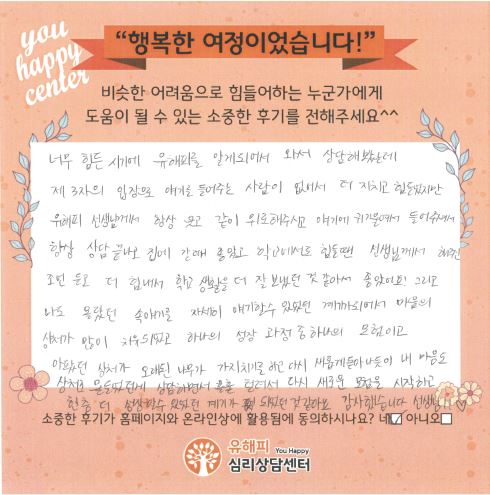 you
happy
center
“행복한 여정이었습니다!”
비슷한 어려움으로 힘들어하는 누군가에게
도움이 될 수 있는 소중한 후기를 전해주세요^^
너무 힘든 시기에 유해피를 알게되어서 와서 상담해봤는데
제 3자의 입장으로 얘기를 들어주는 사람이 없어서 더 지치고 힘들었지만
유해피 선생님께서 항상 웃고 같이 위로해주시고 얘기에 귀기울여서 들어주셔서
항상 상담 끝나고 집에 갈때 좋았고 학교에서도 힘들땐 선생님께서 해주신
조언 듣고 더 힘내서 학교 생활을 더 잘 보냈던 것 같아서 좋았어요! 그리고
나도 몰랐던 속얘기를 자세히 얘기할수 있었던 계기가되어서 마음의
상처가 많이 치유되었고 하나의 성장 과정 중 하나의 모험이고
아팠던 상처가 오래된 나무가 가지치기를 하고 다시 새롭게 돋아나듯이 내 마음도
상처로 물들었던게 상담하면서 다시 새로운 모험을 시작하고
한층 더 성장할수 있었던 계기가 되었던 것 같아요 감사했습니다 선생님!! ♡
소중한 후기가 홈페이지와 온라인상에 활용됨에 동의하시나요? 네☑ 아니오☐
유해피 You Happy
심리상담센터